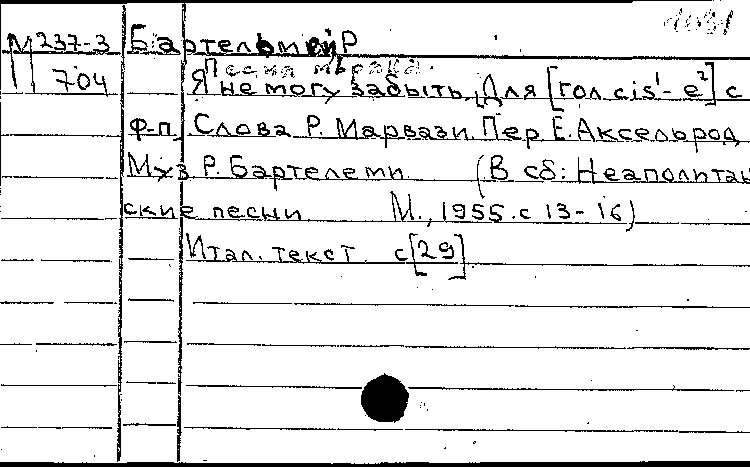 М 237-3 Бартельми Р
704 Песня моряка.
Я не могу забыть. Для [гол. cis¹- e²] с
ф-п. Слова Р. Марвази. Пер. Е. Аксельрод
Муз Р. Бартелеми (В сб: Неаполитан
ские песни М., 1955. с 13-16)
Итал. текст с [29]